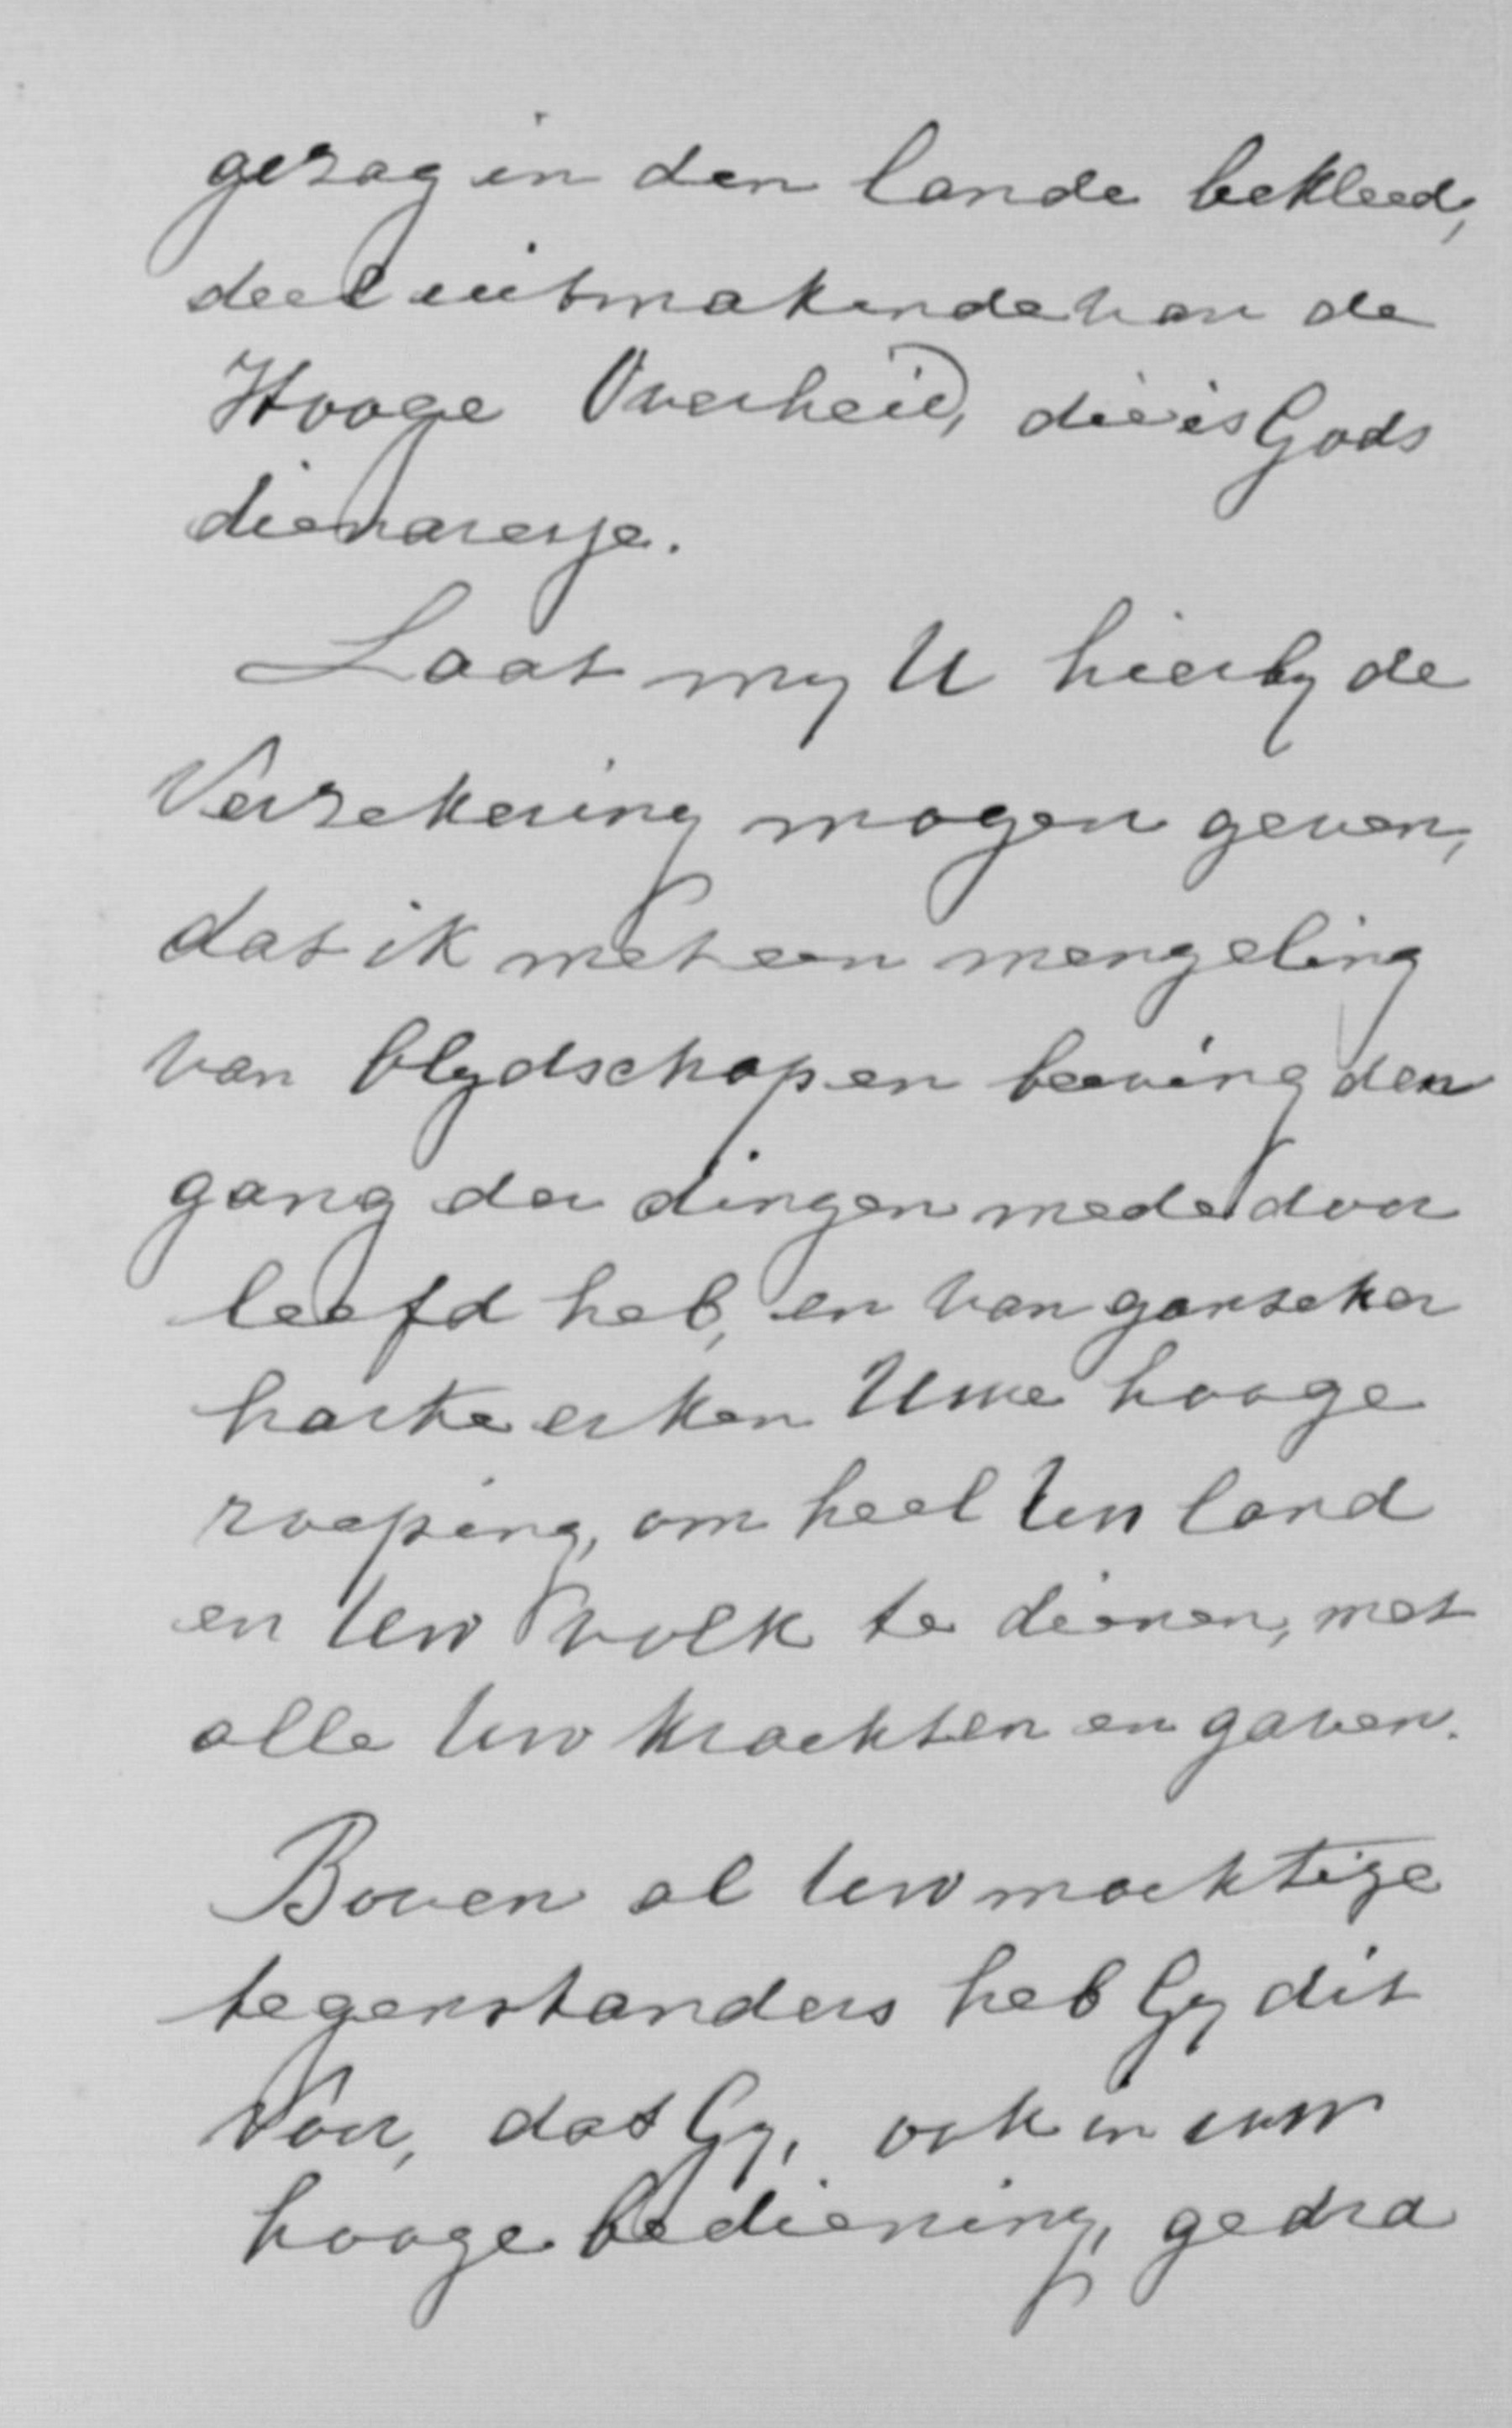 gezag in den lande bekleed,
deel uitmakende van de
Hooge Overheid, die is Gods
dienaresse.
Laat my U hierby de
Verzekering mogen geven,
dat ik met een mengeling
van blydschap en beeving den
gang der dingen mede door
leefd heb, en van ganscher
harte erken Uwe hooge
roeping, om heel Uw land
en Uw volk te dienen, met
alle Uw krachten en gaven.
Boven al Uw machtige
tegenstanders heb Gy dit
voor, dat Gy, ook in uw
hooge bediening, gedra